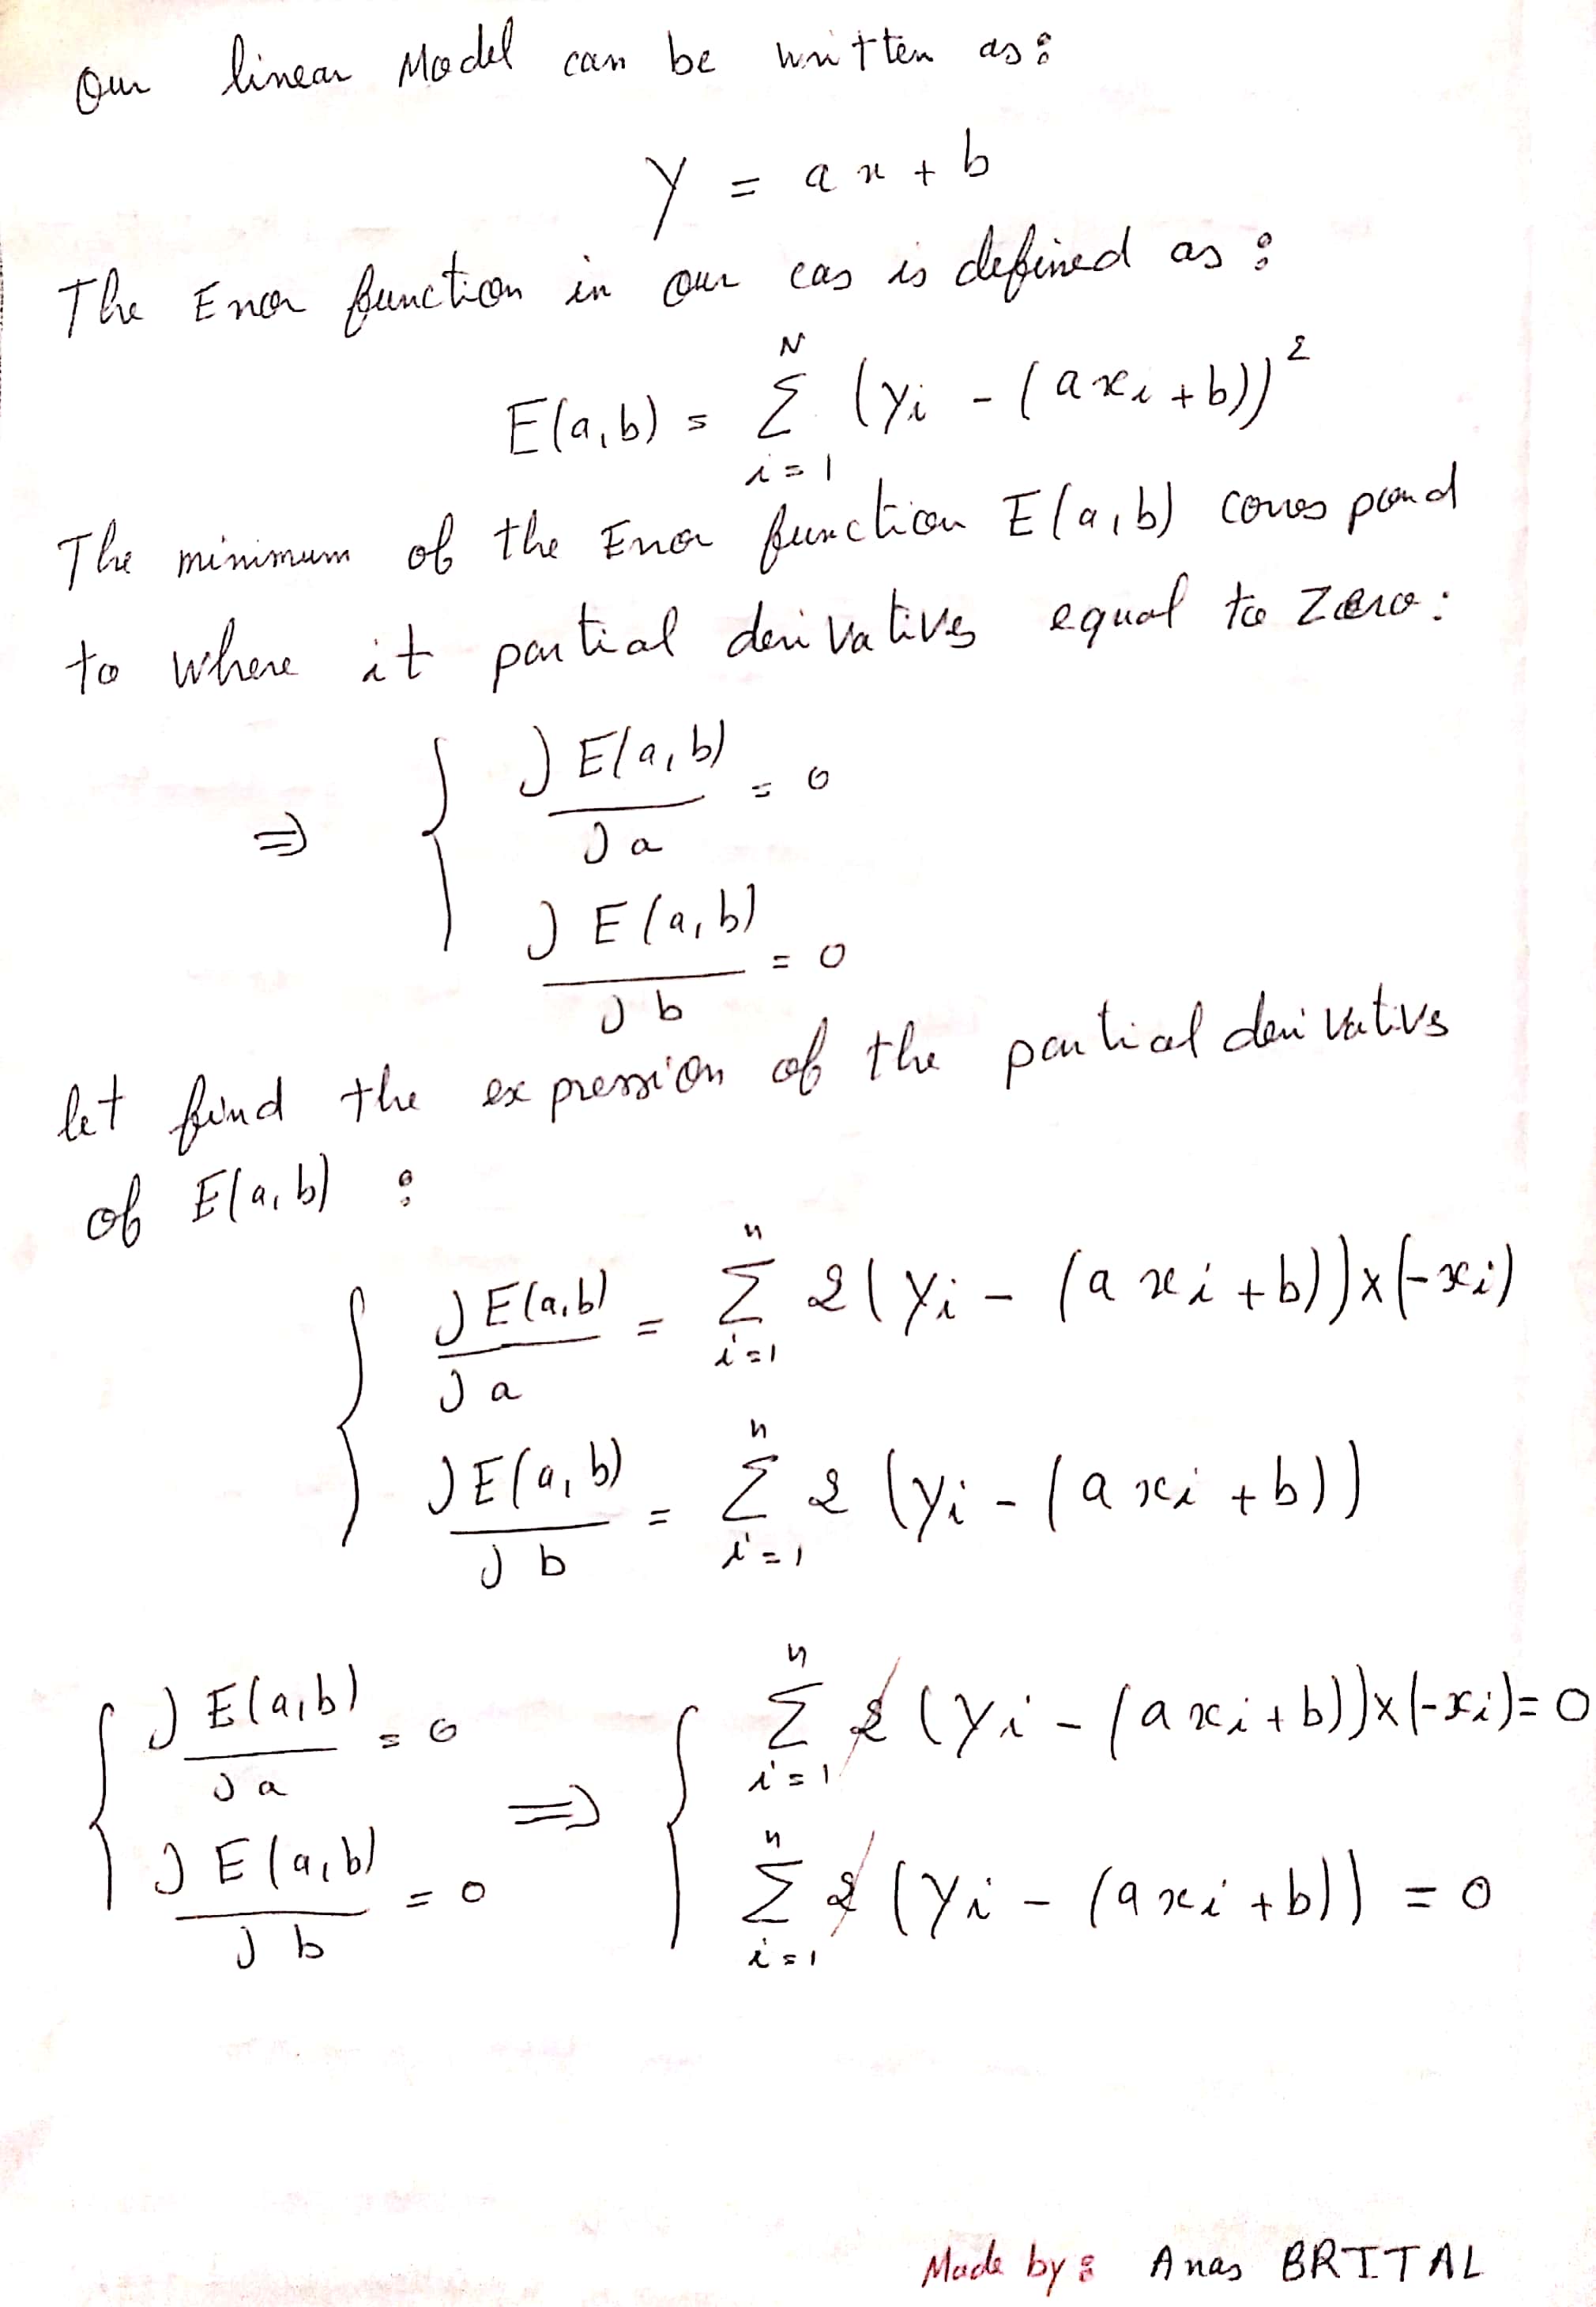 Our linear Model can be written as:
y = ax + b
The Error function in our cas is defined as:
E(a,b) = \sum_{i=1}^{N} (y_i - (ax_i + b))^2
The minimum of the Error function E(a,b) correspond
to where it partial derivatives equal to Zero:
⇒ { ∂E(a,b)/∂a = 0
∂E(a,b)/∂b = 0
let find the expression of the partial derivativs
of E(a,b) :
{ ∂E(a,b)/∂a = \sum_{i=1}^{n} 2(y_i - (ax_i + b))×(-x_i)
∂E(a,b)/∂b = \sum_{i=1}^{n} 2(y_i - (ax_i + b))
{ ∂E(a,b)/∂a = 0 ⇒ { \sum_{i=1}^{n} 2(y_i - (ax_i + b))×(-x_i) = 0
∂E(a,b)/∂b = 0 \sum_{i=1}^{n} 2(y_i - (ax_i + b)) = 0
Made by: Anas BRITAL